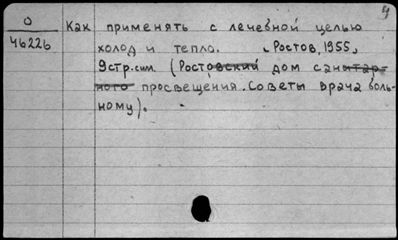 О
46226
Как применять с лечебной целью
холод и тепло. Ростов, 1955,
9стр.сил. (Ростовский дом санитар-
ного просвещения. Советы врача боль-
ному).